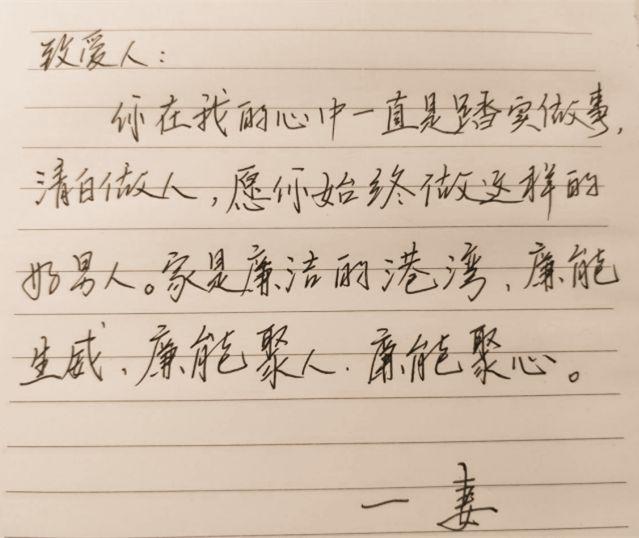 致爱人：
你在我的心中一直是踏实做事，
清白做人，愿你始终做这样的
好男人。家是廉洁的港湾、廉能
生威、廉能聚人、廉能聚心。
一妻